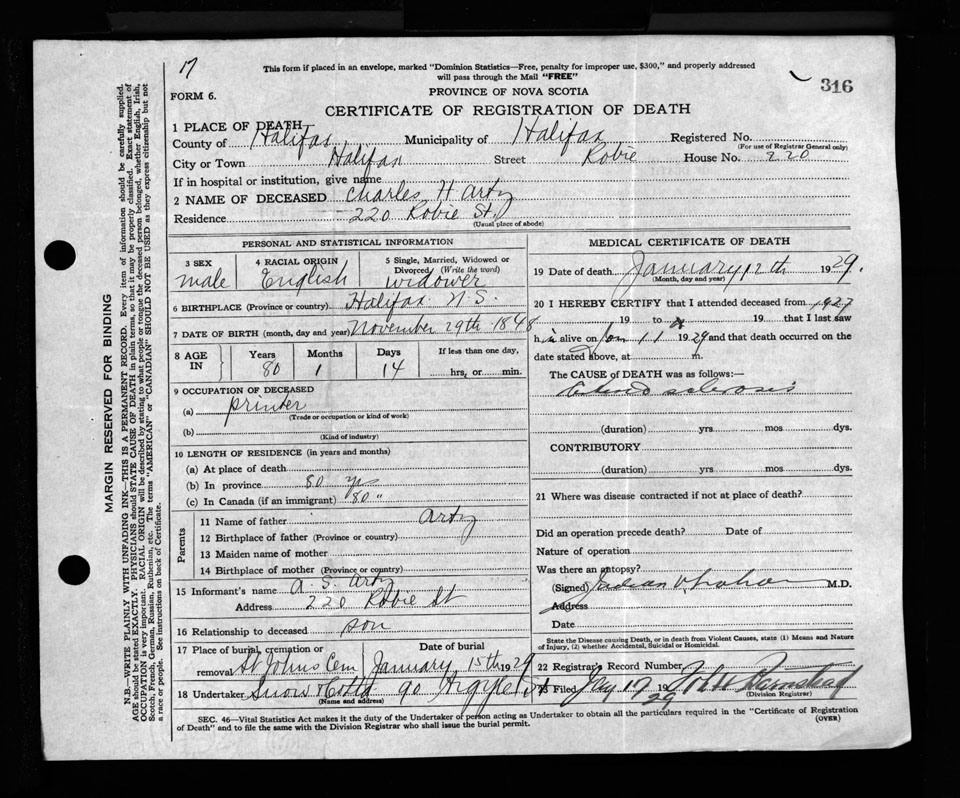 17
This form if placed in an envelope, marked "Dominion Statistics—Free, penalty for improper use, $300," and properly addressed
will pass through the Mail "FREE"
316
FORM 6.
PROVINCE OF NOVA SCOTIA
CERTIFICATE OF REGISTRATION OF DEATH
1 PLACE OF DEATH
County of Halifax Municipality of Halifax Registered No.
(For use of Registrar General only)
City or Town Halifax Street Robie House No. 220
If in hospital or institution, give name
2 NAME OF DECEASED Charles H Arty
Residence 220 Robie St.
(Usual place of abode)
PERSONAL AND STATISTICAL INFORMATION
3 SEX 4 RACIAL ORIGIN 5 Single, Married, Widowed or
Divorced (Write the word)
male English widower
6 BIRTHPLACE (Province or country) Halifax N.S.
7 DATE OF BIRTH (month, day and year) November 29th 1848
8 AGE IN Years Months Days If less than one day,
80 1 14 hrs. or min.
9 OCCUPATION OF DECEASED
(a) printer
(Trade or occupation or kind of work)
(b)
(Kind of industry)
10 LENGTH OF RESIDENCE (in years and months)
(a) At place of death
(b) In province 80 yrs
(c) In Canada (if an immigrant) 80 "
Parents
11 Name of father Arty
12 Birthplace of father (Province or country)
13 Maiden name of mother
14 Birthplace of mother (Province or country)
15 Informant's name A. S. Arty
Address 220 Robie St
16 Relationship to deceased son
17 Place of burial, cremation or removal St Johns Cem
Date of burial January 15th 1929
18 Undertaker Snow & Co Ltd 90 Argyle St
(Name and address)
MEDICAL CERTIFICATE OF DEATH
19 Date of death January 12th 1929.
(Month, day and year)
20 I HEREBY CERTIFY that I attended deceased from 1927
19 to 19 that I last saw
him alive on Jan 11 1929 and that death occurred on the
date stated above, at m.
The CAUSE OF DEATH was as follows:
sclerosis
(duration) yrs mos dys.
CONTRIBUTORY
(duration) yrs mos dys.
21 Where was disease contracted if not at place of death?
Did an operation precede death? Date of
Nature of operation
Was there an autopsy?
(Signed) M.D.
Address
Date
State the Disease causing Death, or in death from Violent Causes, state (1) Means and Nature
of Injury, (2) whether Accidental, Suicidal or Homicidal.
22 Registrar's Record Number
23 Filed Jany 17 1929 John H Barnstead
(Division Registrar)
SEC. 46—Vital Statistics Act makes it the duty of the Undertaker or person acting as Undertaker to obtain all the particulars required in the "Certificate of Registration
of Death" and to file the same with the Division Registrar who shall issue the burial permit.
(OVER)
MARGIN RESERVED FOR BINDING
N.B.—WRITE PLAINLY WITH UNFADING INK—THIS IS A PERMANENT RECORD. Every item of information should be carefully supplied.
AGE should be stated EXACTLY. PHYSICIANS should STATE CAUSE OF DEATH in plain terms, so that it may be properly classified. Exact statement of
OCCUPATION is very important. RACIAL ORIGIN will be described by stating to what people or tongue the deceased person belonged, whether English, Irish,
Scotch, French, German, Russian, Ruthenian, etc. The terms "AMERICAN" or "CANADIAN" SHOULD NOT BE USED as they express citizenship but not
a race or people. See instructions on back of Certificate.